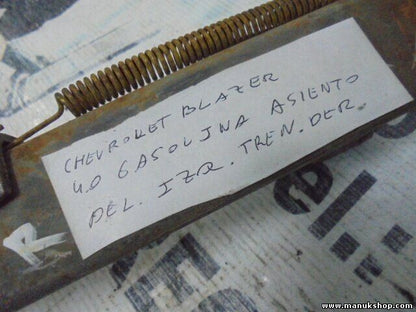 CHEVROLET BLAZER
4.0 GASOLINA ASIENTO
DEL. IZQ. TREN. DER.
www.manukshop.com